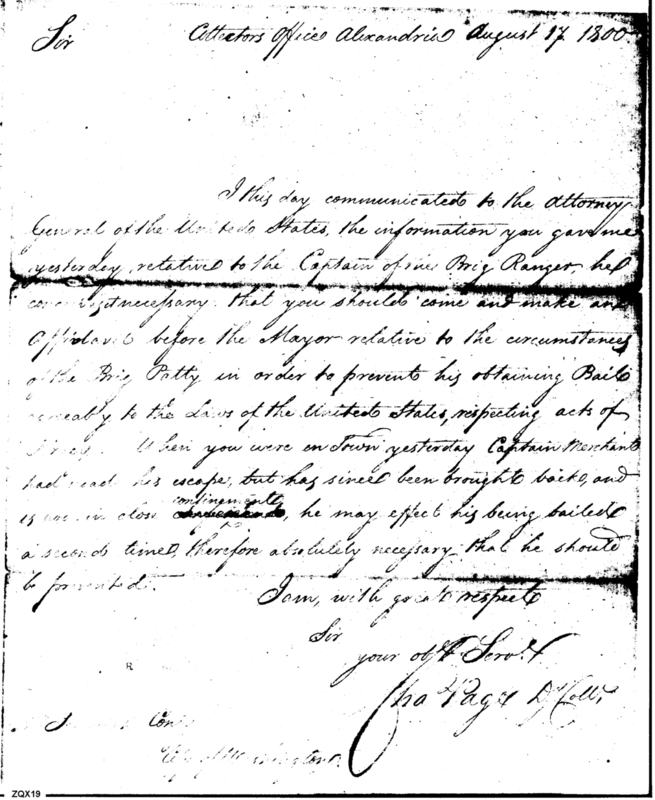 Collectors Office Alexandria August 17 1800.
Sir
I this day communicated to the Attorney
General of the United States, the information you gave me
yesterday, relative to the Captain of the Brig Ranger, he
it necessary that you should come and make an
Affidavit before the Mayor relative to the circumstances
of the Brig Patty in order to prevent his obtaining Bail
agreeably to the Laws of the United States, respecting acts of
When you were in Town yesterday Captain Merchant
had made his escape, but has since been brought back, and
is now in close confinement, he may effect his being bailed
a second time, therefore absolutely necessary that he should
be prevented.
I am, with great respect
Sir
your obt. Servt.
Cha Page D Collr.
City of Washington.
R
ZQX19